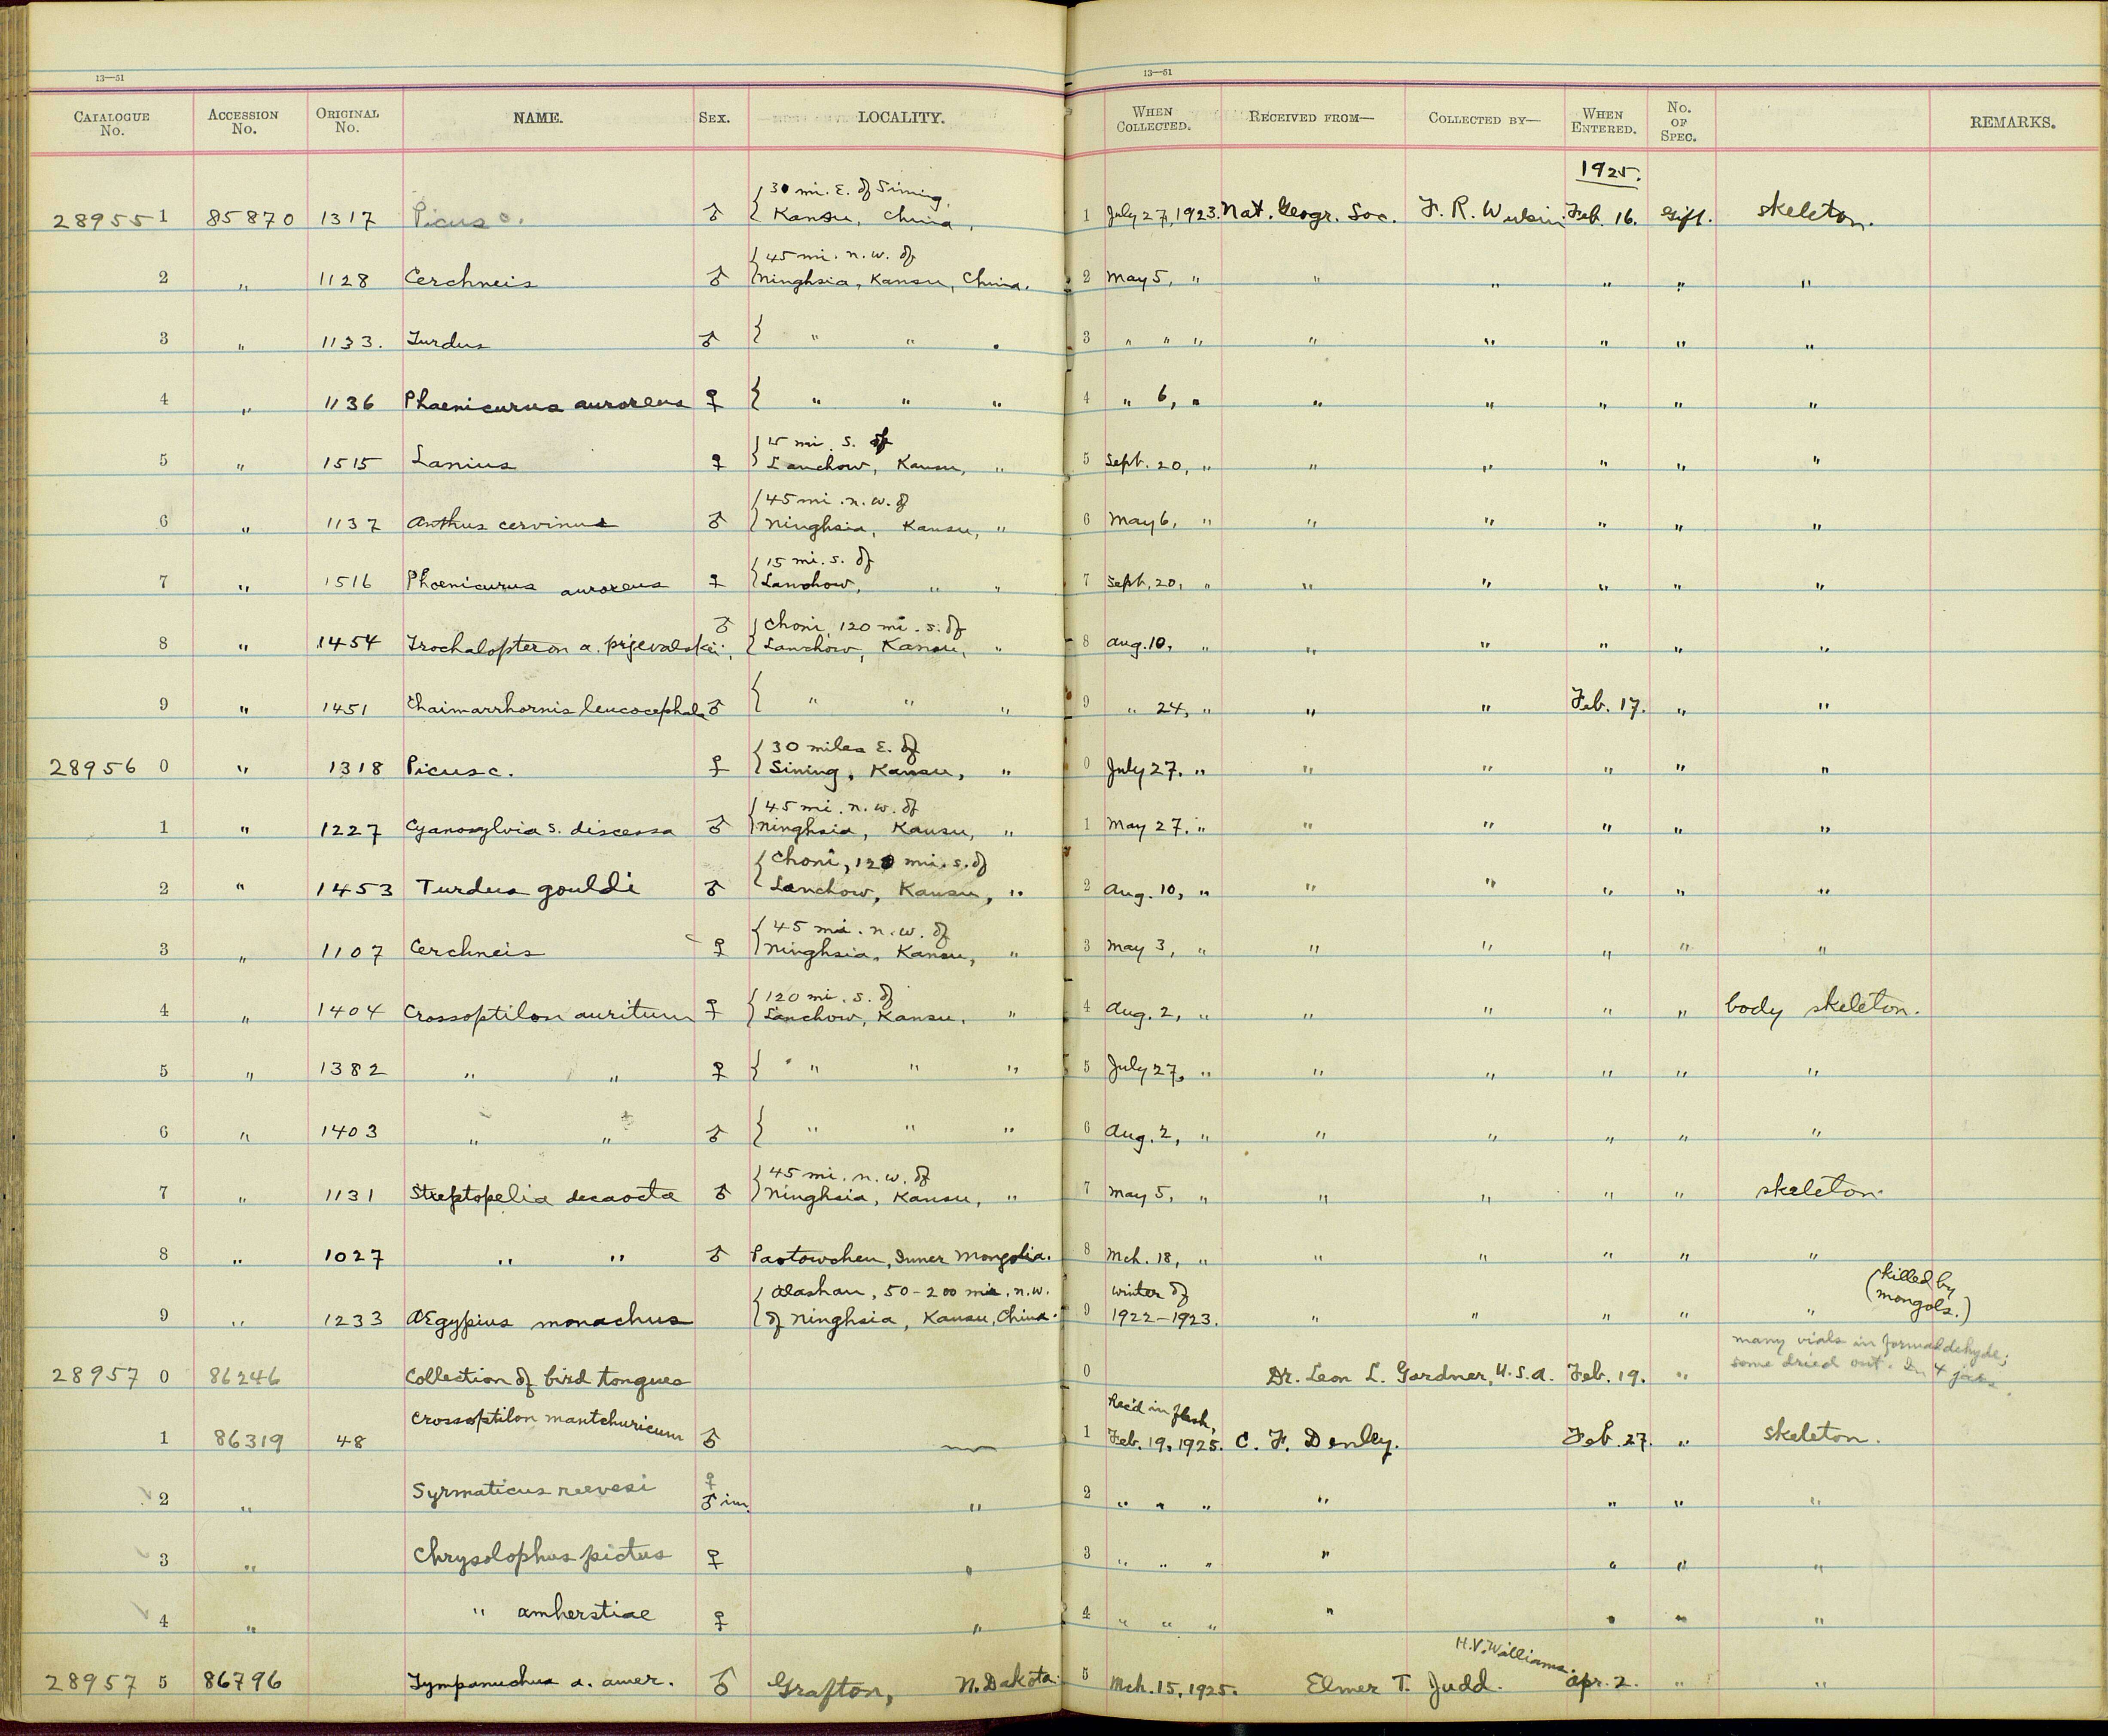 13—51 13—51
CATALOGUE No. ACCESSION No. ORIGINAL No. NAME. SEX. LOCALITY. WHEN COLLECTED. RECEIVED FROM— COLLECTED BY— WHEN ENTERED. No. OF SPEC. REMARKS.
1925.
28955 1 85870 1317 Picus c. ♂ { 30 mi. E. of Sining, Kansu, China, 1 July 27, 1923. Nat. Geogr. Soc. F. R. Wulsin Feb. 16. Gift. skeleton.
2 " 1128 Cerchneis ♂ { 45 mi. n.w. of Ninghsia, Kansu, China. 2 May 5, " " " " " "
3 " 1133. Turdus ♂ { " " " 3 " " " " " " " "
4 " 1136 Phaenicurus auroreus ♀ { " " " 4 " 6, " " " " " "
5 " 1515 Lanius ♀ { 15 mi. S. of Lanchow, Kansu, " 5 Sept. 20, " " " " " "
6 " 1137 Anthus cervinus ♂ { 45 mi. n.w. of Ninghsia, Kansu, " 6 May 6, " " " " " "
7 " 1516 Phoenicurus auroreus ♀ { 15 mi. s. of Lanchow, " " 7 Sept. 20, " " " " " "
8 " 1454 Trochalopteron a. prjevalskii. ♂ { Choni, 120 mi. s. of Lanchow, Kansu, " 8 Aug. 10, " " " " " "
9 " 1451 Chaimarrhornis leucocephala ♂ { " " " 9 " 24, " " " Feb. 17. " "
28956 0 " 1318 Picus c. ♀ { 30 miles E. of Sining, Kansu, " 0 July 27. " " " " " "
1 " 1227 Cyanosylvia s. discessa ♂ { 45 mi. n.w. of Ninghsia, Kansu, " 1 May 27. " " " " " "
2 " 1453 Turdus gouldi ♂ { Choni, 120 mi. s. of Lanchow, Kansu, " 2 Aug. 10, " " " " " "
3 " 1107 Cerchneis ♀ { 45 mi. n.w. of Ninghsia, Kansu, " 3 May 3, " " " " " "
4 " 1404 Crossoptilon auritum ♀ { 120 mi. s. of Lanchow, Kansu, " 4 Aug. 2, " " " " " body skeleton.
5 " 1382 " " ♀ { " " " 5 July 27, " " " " " "
6 " 1403 " " ♂ { " " " 6 Aug. 2, " " " " " "
7 " 1131 Streptopelia decaocta ♂ { 45 mi. n.w. of Ninghsia, Kansu, " 7 May 5, " " " " " skeleton
8 " 1027 " " ♂ Paotowchen, Inner Mongolia. 8 Mch. 18, " " " " " "
9 " 1233 Ægypius monachus { Alashan, 50-200 mi. n.w. of Ninghsia, Kansu, China. 9 winter of 1922-1923. " " " " " (killed by mongols.)
28957 0 86246 Collection of bird tongues 0 Dr. Leon L. Gardner, U.S.A. Feb. 19. " many vials in formaldehyde; some dried out. In 4 jars.
1 86319 48 Crossoptilon mantchuricum ♂ 1 Rec'd in flesh, Feb. 19, 1925. C. F. Denley. Feb. 27. " skeleton.
2 " Syrmaticus reevesi ♀ ♂ im. " 2 " " " " " " "
3 " Chrysolophus pictus ♀ " 3 " " " " " " "
4 " " amherstiae ♀ " 4 " " " " " " "
28957 5 86796 Tympanuchus a. amer. ♂ Grafton, N. Dakota. 5 Mch. 15, 1925. Elmer T. Judd. H.V. Williams. Apr. 2. " "